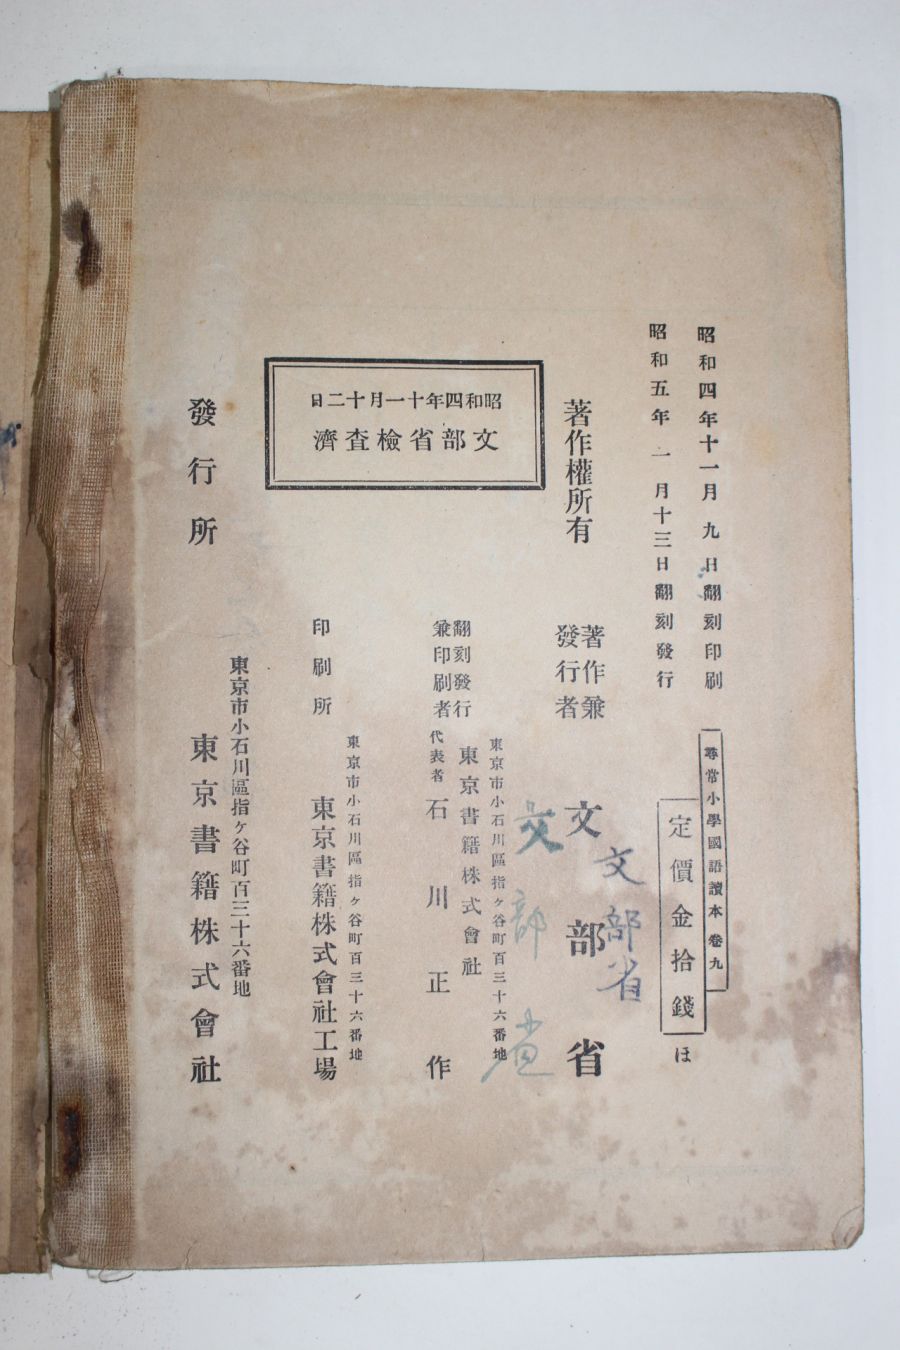 昭和四年十一月九日翻刻印刷
昭和五年一月十三日翻刻發行
尋常小學國語讀本 卷九
定價金拾錢
ほ
著作權所有
著作兼
發行者
文部省
文部省
文部省
昭和四年十一月十二日
文部省檢査濟
翻刻發行
兼印刷者
東京市小石川區指ヶ谷町百三十六番地
東京書籍株式會社
代表者 石川正作
印刷所
東京市小石川區指ヶ谷町百三十六番地
東京書籍株式會社工場
發行所
東京市小石川區指ヶ谷町百三十六番地
東京書籍株式會社